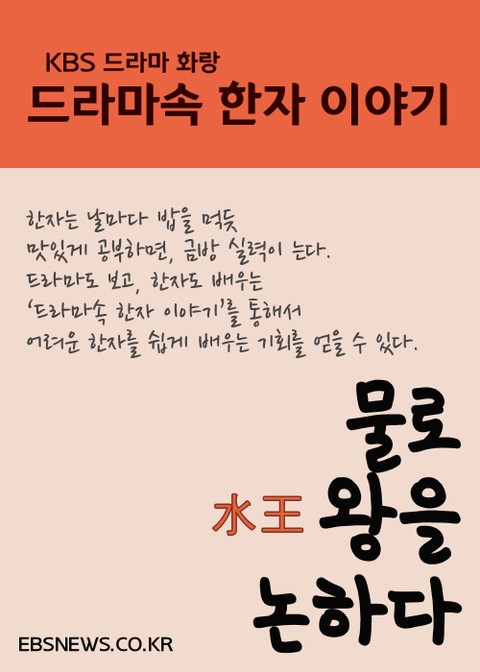 KBS 드라마 화랑
드라마속 한자 이야기
한자는 날마다 밥을 먹듯
맛있게 공부하면, 금방 실력이 는다.
드라마도 보고, 한자도 배우는
‘드라마속 한자 이야기’를 통해서
어려운 한자를 쉽게 배우는 기회를 얻을 수 있다.
물로
水王 왕을
논하다
EBSNEWS.CO.KR